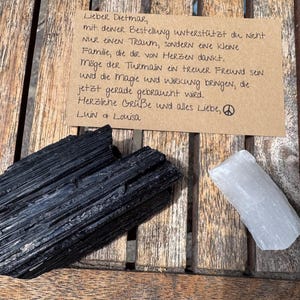 Lieber Dietmar,
mit deiner Bestellung unterstützt du nicht
nur einen Traum, sondern eine kleine
Familie, die dir von Herzen dankt.
Möge der Turmalin ein treuer Freund sein
und die Magie und Wirkung bringen, die
jetzt gerade gebraucht wird.
Herzliche Grüße und alles Liebe,
Luin & Louisa